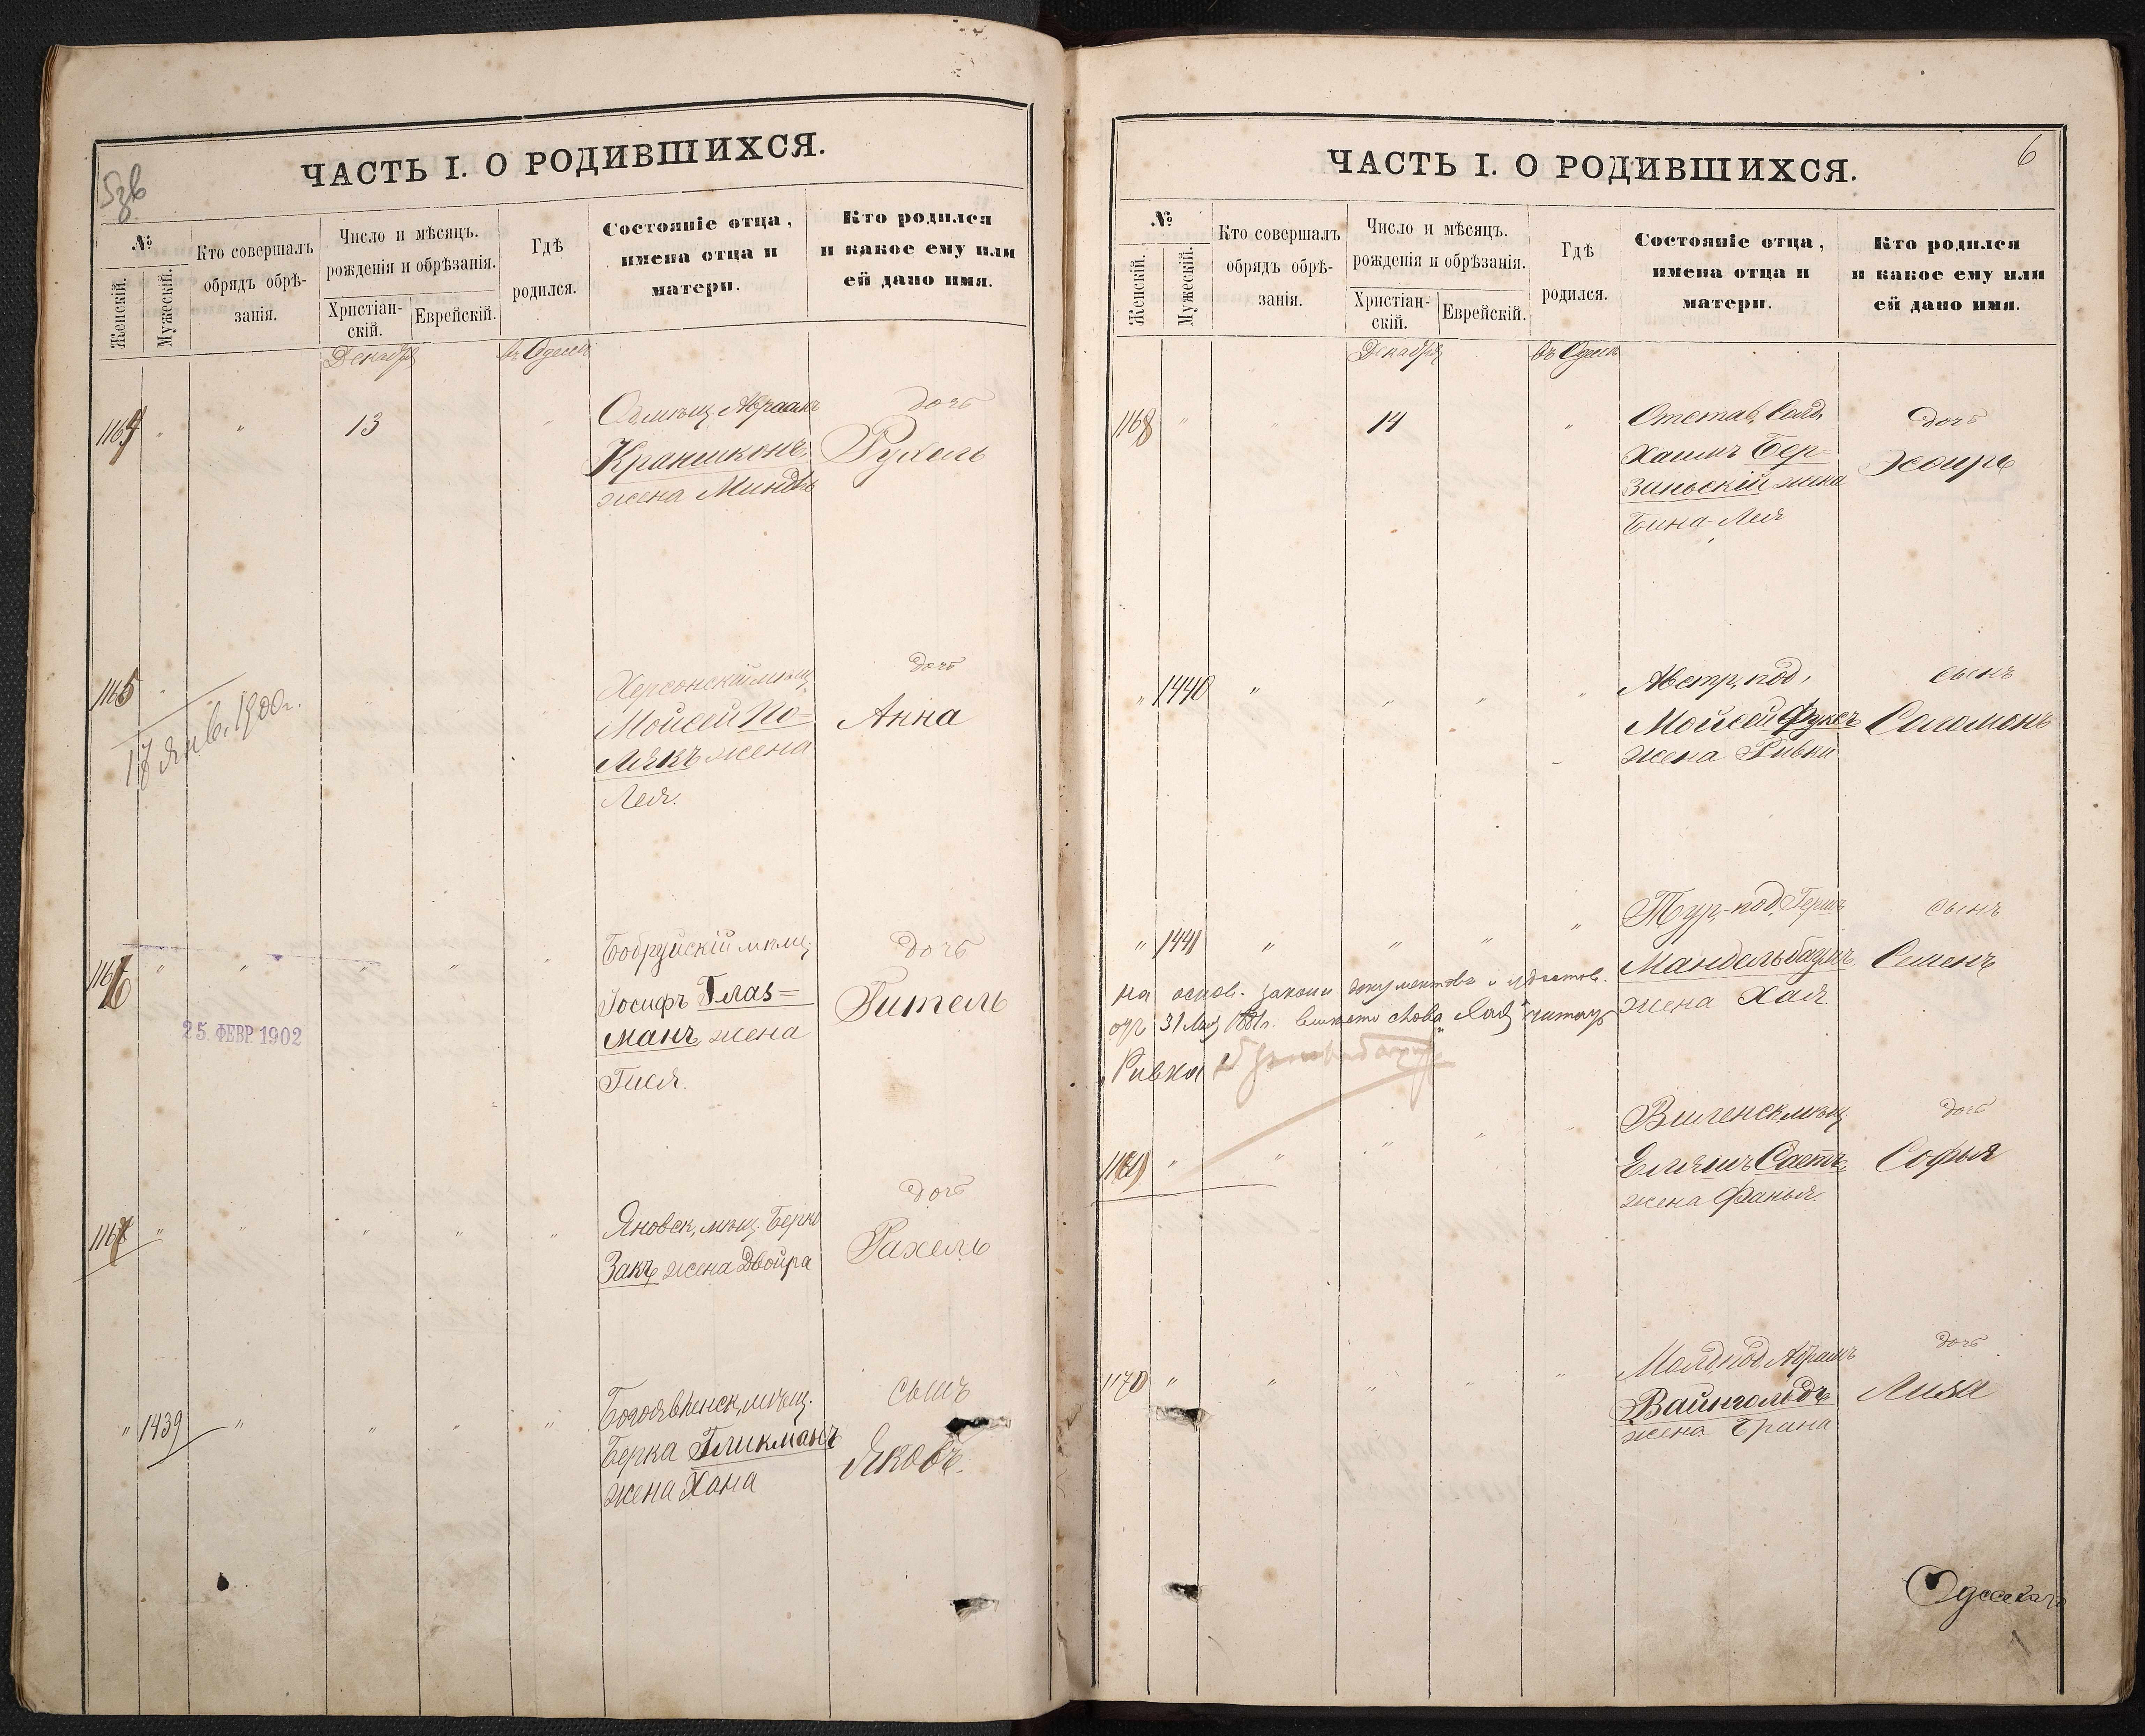 ЧАСТЬ I. О РОДИВШИХСЯ.
№
Женскій.
Мужескій.
Кто совершалъ
обрядъ обрѣ-
занія.
Число и мѣсяцъ.
рожденія и обрѣзанія.
Христіан-
скій.
Еврейскій.
Гдѣ
родился.
Состояніе отца,
имена отца и
матери.
Кто родился
и какое ему или
ей дано имя.
Декабря
въ Одессѣ
1164 " " 13 "
Абрамъ
дочь
жена
Рухель
1165
Херсонскій мѣщ.
дочь
Мойсей По-
Анна
лякъ жена
Лея.
17 Янв. 1900 г.
1166 " " " " "
Бобруйскій мѣщ.
дочь
Іосифъ Глаз=
Гитель
манъ жена
Гися.
25. ФЕВР. 1902
1167 " " " " "
Яновск. мѣщ. Берко
дочь
Закъ жена Двойра
Рахель
" 1439 " " " "
Богоявленск. мѣщ.
сынъ
Берка Гликманъ
Яковъ.
жена Хана
ЧАСТЬ I. О РОДИВШИХСЯ.
6
№
Женскій.
Мужескій.
Кто совершалъ
обрядъ обрѣ-
занія.
Число и мѣсяцъ.
рожденія и обрѣзанія.
Христіан-
скій.
Еврейскій.
Гдѣ
родился.
Состояніе отца,
имена отца и
матери.
Кто родился
и какое ему или
ей дано имя.
Декабря
въ Одессѣ
1168 " " 14 "
Отстав. солд.
дочь
Хаимъ Бер=
Эсѳирь
заньскій жена
Бина-Лея
" 1440 " " " "
Австр. под.
сынъ
Мойсей Фуксъ
Соломонъ
жена Ривка
" 1441 " " " "
Тур. под. Гершъ
сынъ
Мандельбаумъ
Семенъ
жена Хая.
на основ. законн документовъ и
31 Мая 1881 г. вмѣсто слова "Хая" читать
"Ривка"
1169 " " " " "
Виленск. мѣщ.
дочь
Софья
жена Фаня.
1170 " " " " "
Молд. под. Абрамъ
дочь
Вайнгольдъ
Лиза
жена Брана